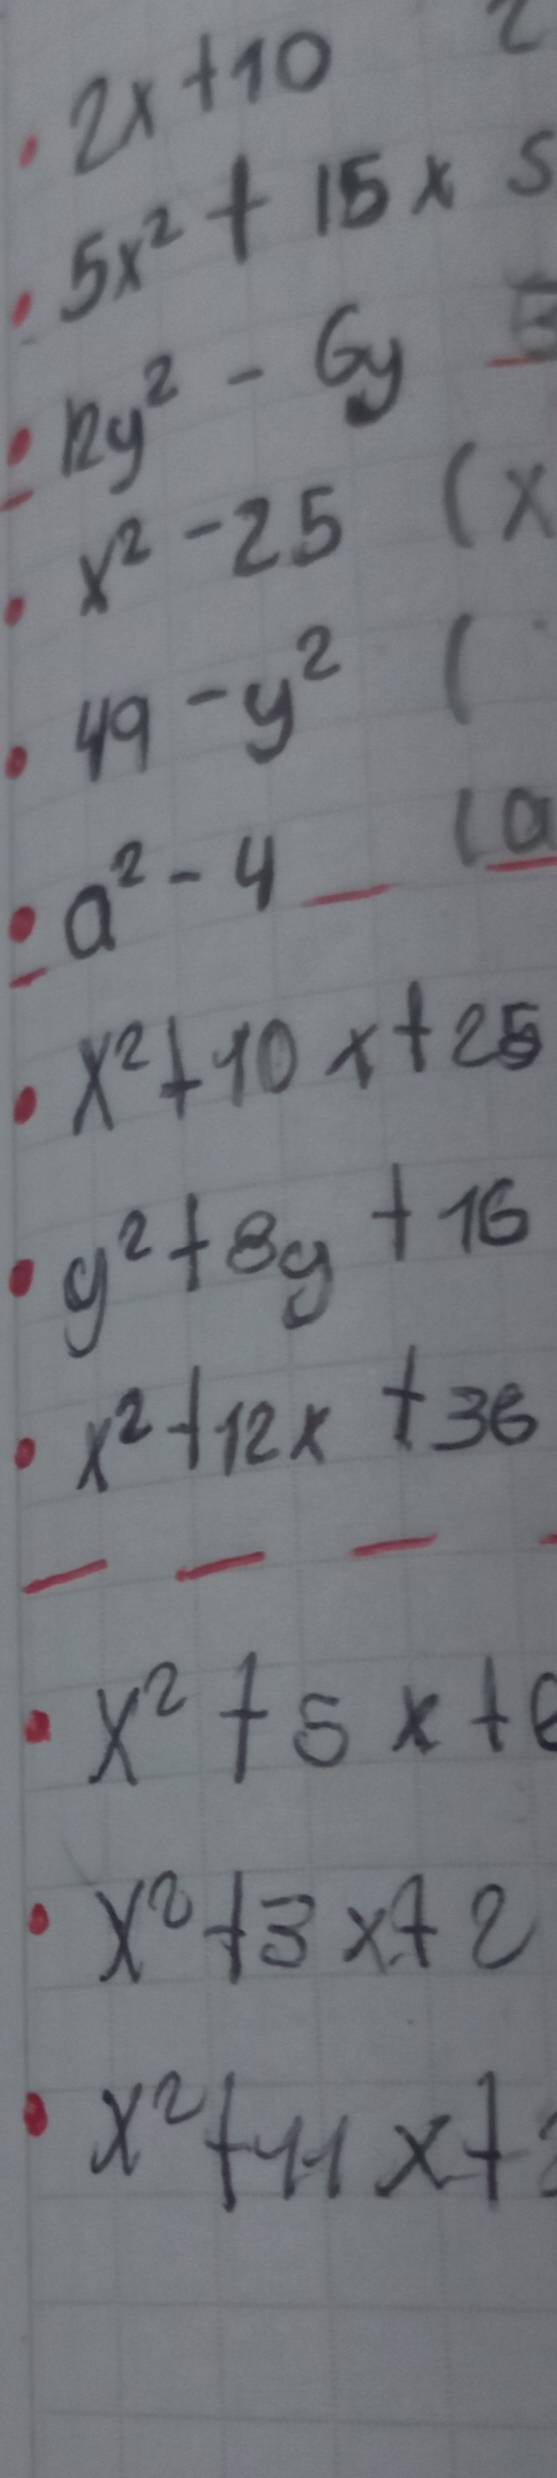 2x+10 2
5x²+15x 5
12y²-6y
x²-25 (x
49-y² (
a²-4 (a
x²+10x+25
y²+8y+16
x²+12x+36
x²+5x+6
x²+3x+2
x²+11x+